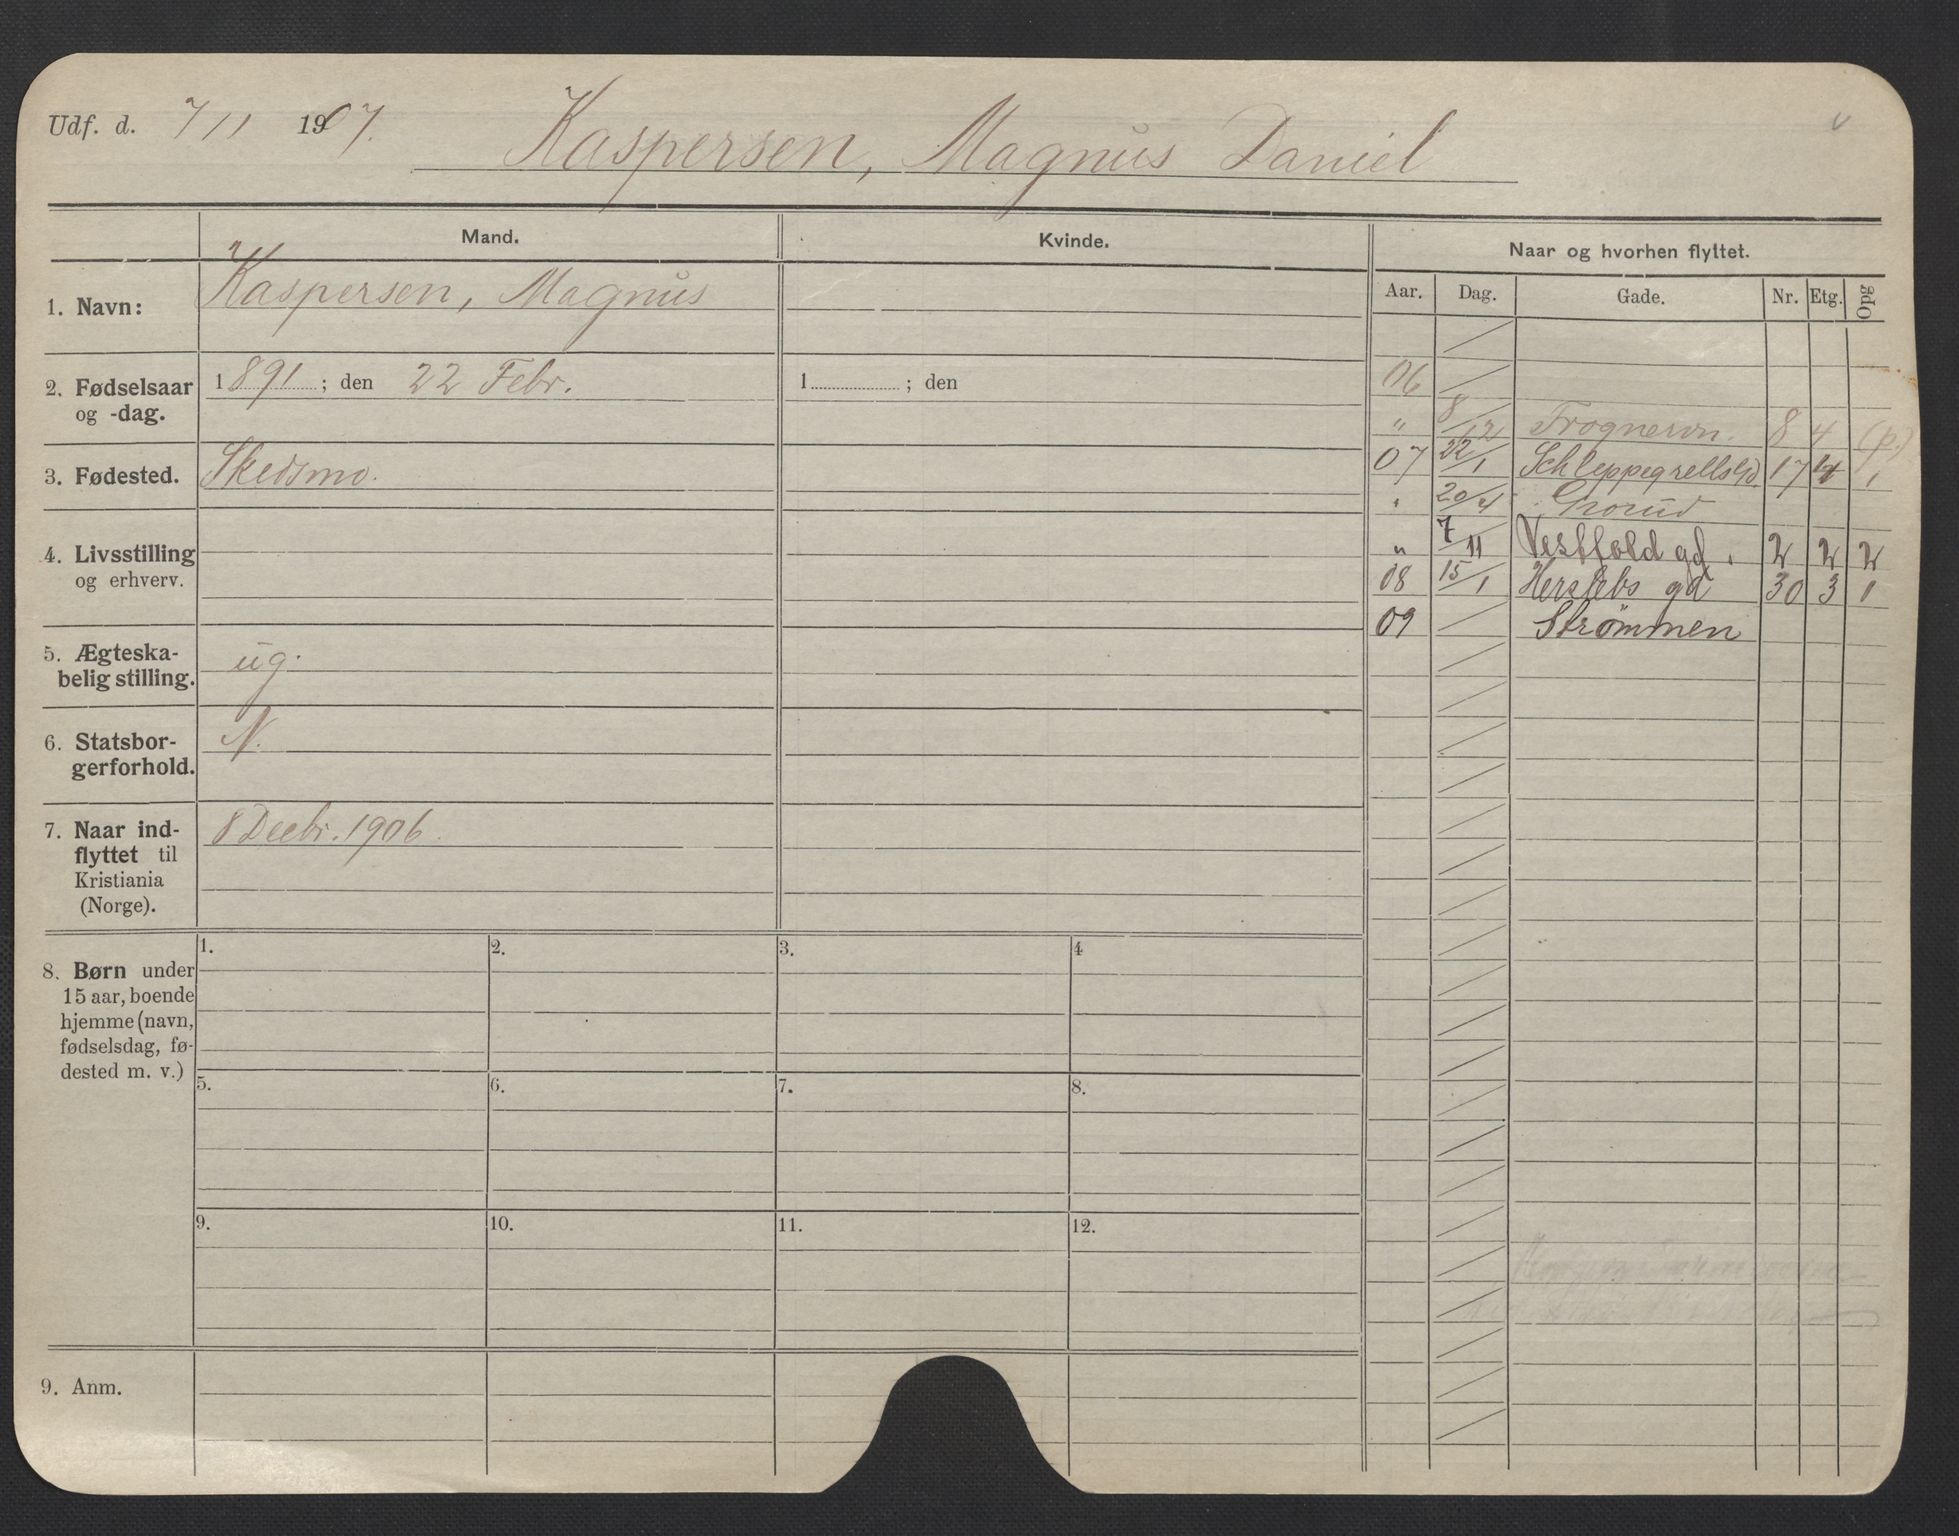 Udf. d. 7/11 1907. Kaspersen, Magnus Daniel
Mand. Kvinde. Naar og hvorhen flyttet.
Aar. Dag. Gade. Nr. Etg. Opg
1. Navn: Kaspersen, Magnus
2. Fødselsaar og -dag. 1891; den 22 Febr. 1 ; den
3. Fødested. Skedsmo.
4. Livsstilling og erhverv.
5. Ægteskabelig stilling. ug.
6. Statsborgerforhold. N.
7. Naar indflyttet til Kristiania (Norge). 8 Decbr. 1906.
06
" 8/12 Frognervn. 8 4 (p.)
07 22/1 Schleppegrellsgd. 17 1
" 20/4 Grorud
" 7/11 Vestfold gd. 2 2 2
08 15/1 Herslebs gd 30 3 1
09 Strømmen
8. Børn under
15 aar, boende
hjemme (navn,
fødselsdag, fø-
dested m. v.)
1. 2. 3. 4
5. 6. 7. 8.
9. 10. 11. 12.
9. Anm.